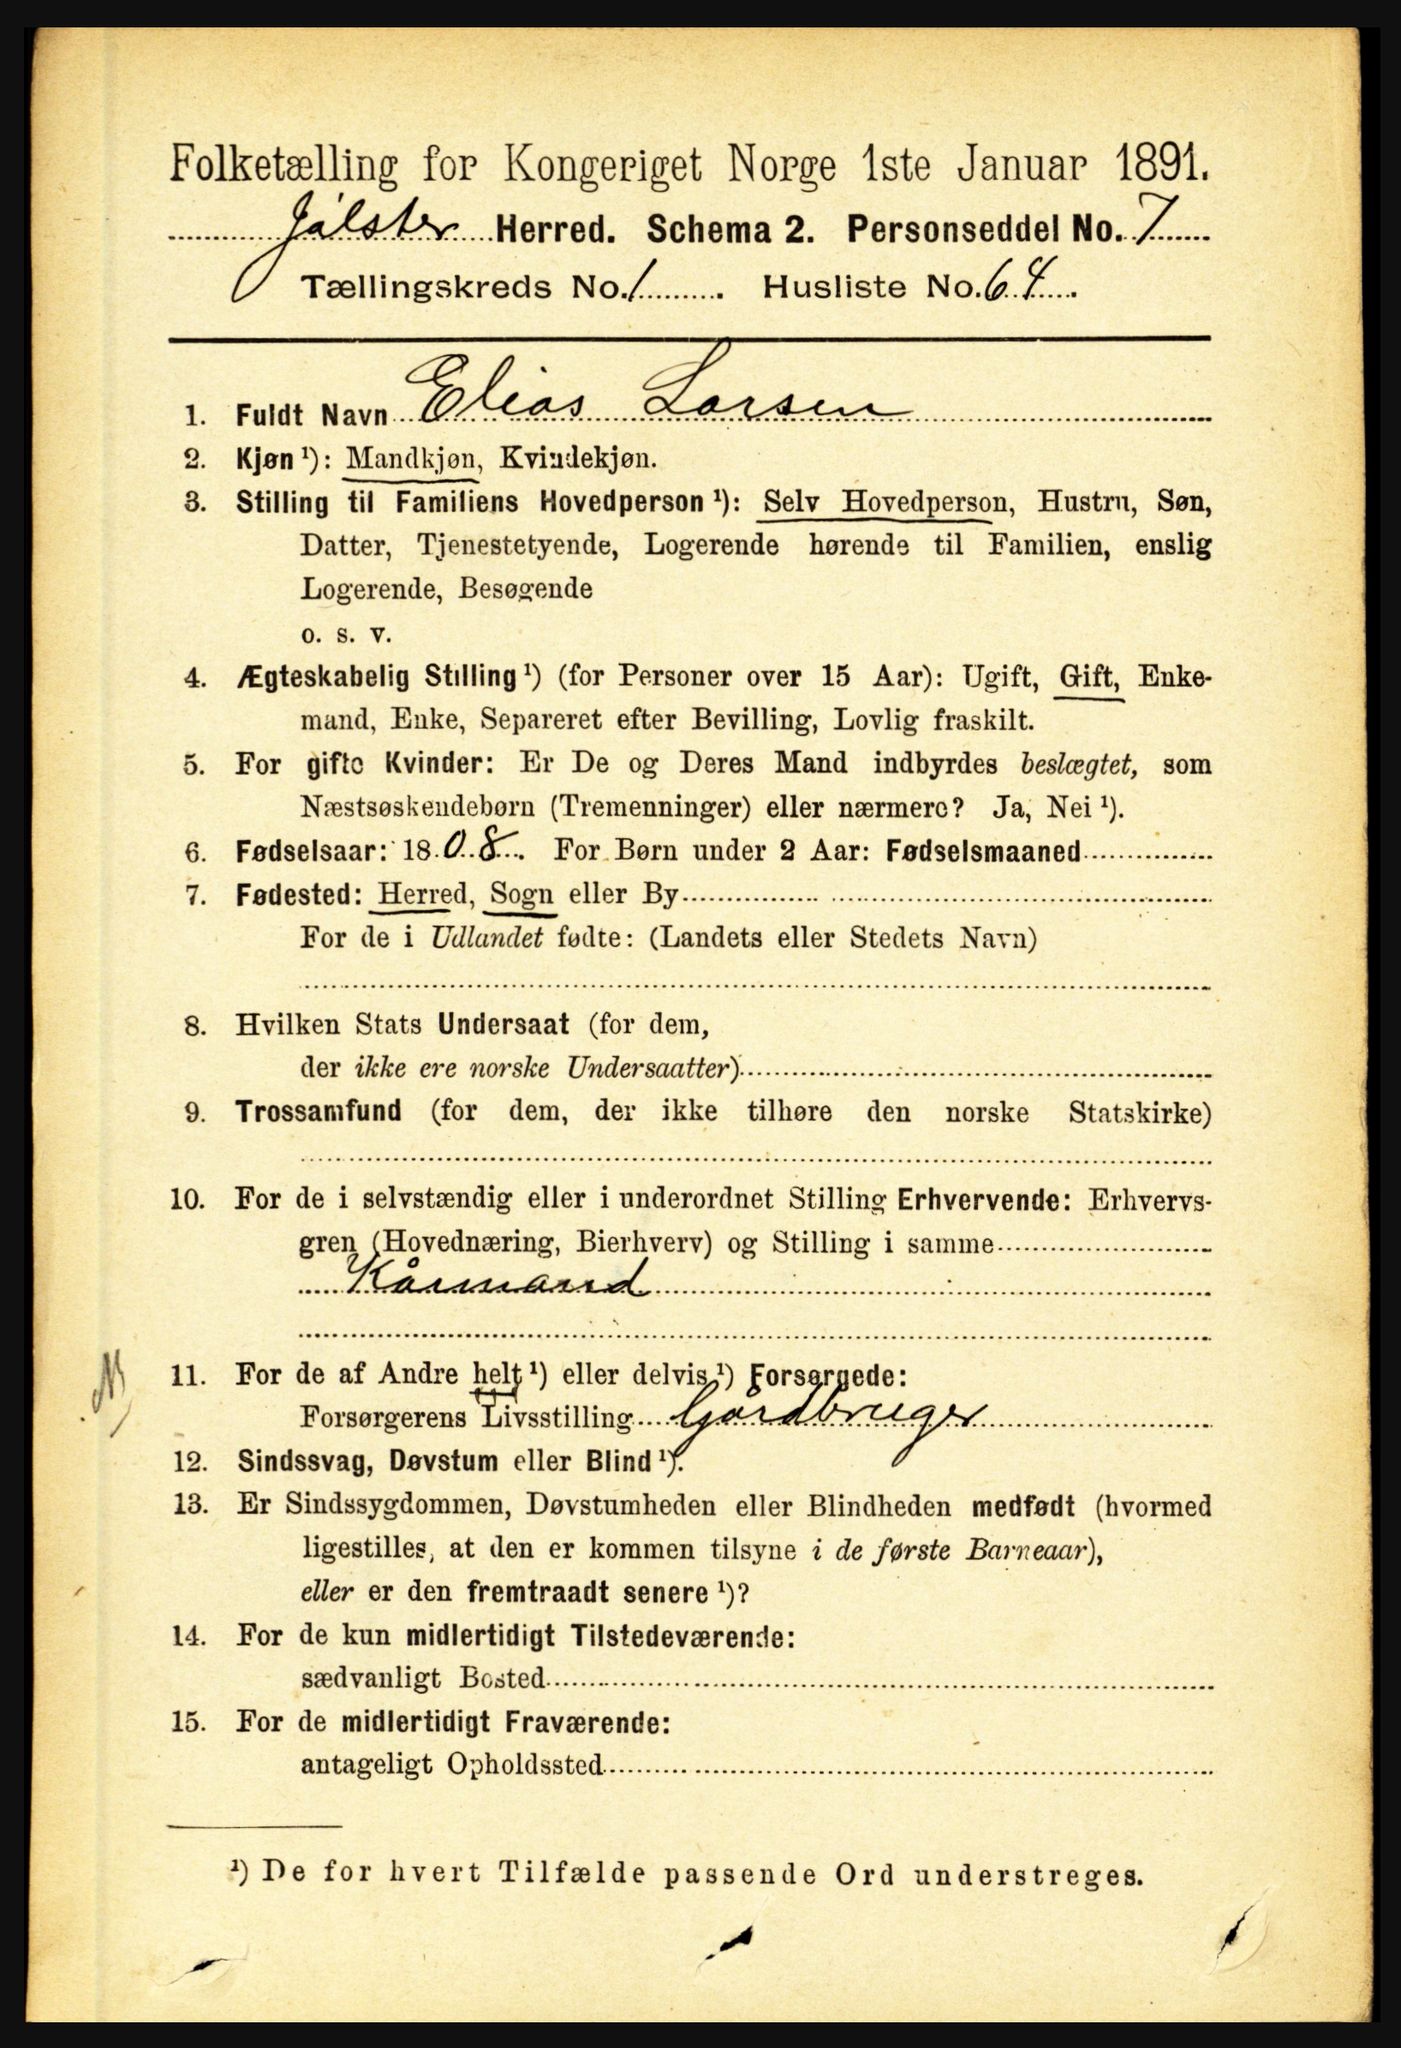 Folketælling for Kongeriget Norge 1ste Januar 1891.
Jølster Herred. Schema 2. Personseddel No. 7
Tællingskreds No. 1. Husliste No. 64.
1. Fuldt Navn Elias Larsen
2. Kjøn ¹): Mandkjøn, Kvindekjøn.
3. Stilling til Familiens Hovedperson ¹): Selv Hovedperson, Hustru, Søn,
Datter, Tjenestetyende, Logerende hørende til Familien, enslig
Logerende, Besøgende
o. s. v.
4. Ægteskabelig Stilling ¹) (for Personer over 15 Aar): Ugift, Gift, Enke-
mand, Enke, Separeret efter Bevilling, Lovlig fraskilt.
5. For gifte Kvinder: Er De og Deres Mand indbyrdes beslægtet, som
Næstsøskendebørn (Tremenninger) eller nærmere? Ja, Nei ¹).
6. Fødselsaar: 1808. For Børn under 2 Aar: Fødselsmaaned
7. Fødested: Herred, Sogn eller By
For de i Udlandet fødte: (Landets eller Stedets Navn)
8. Hvilken Stats Undersaat (for dem,
der ikke ere norske Undersaatter)
9. Trossamfund (for dem, der ikke tilhøre den norske Statskirke)
10. For de i selvstændig eller i underordnet Stilling Erhvervende: Erhvervs-
gren (Hovednæring, Bierhverv) og Stilling i samme
Kårmand
11. For de af Andre helt ¹) eller delvis ¹) Forsørgede:
Forsørgerens Livsstilling Gårdbruger
12. Sindssvag, Døvstum eller Blind ¹).
13. Er Sindssygdommen, Døvstumheden eller Blindheden medfødt (hvormed
ligestilles, at den er kommen tilsyne i de første Barneaar),
eller er den fremtraadt senere ¹)?
14. For de kun midlertidigt Tilstedeværende:
sædvanligt Bosted
15. For de midlertidigt Fraværende:
antageligt Opholdssted
¹) De for hvert Tilfælde passende Ord understreges.